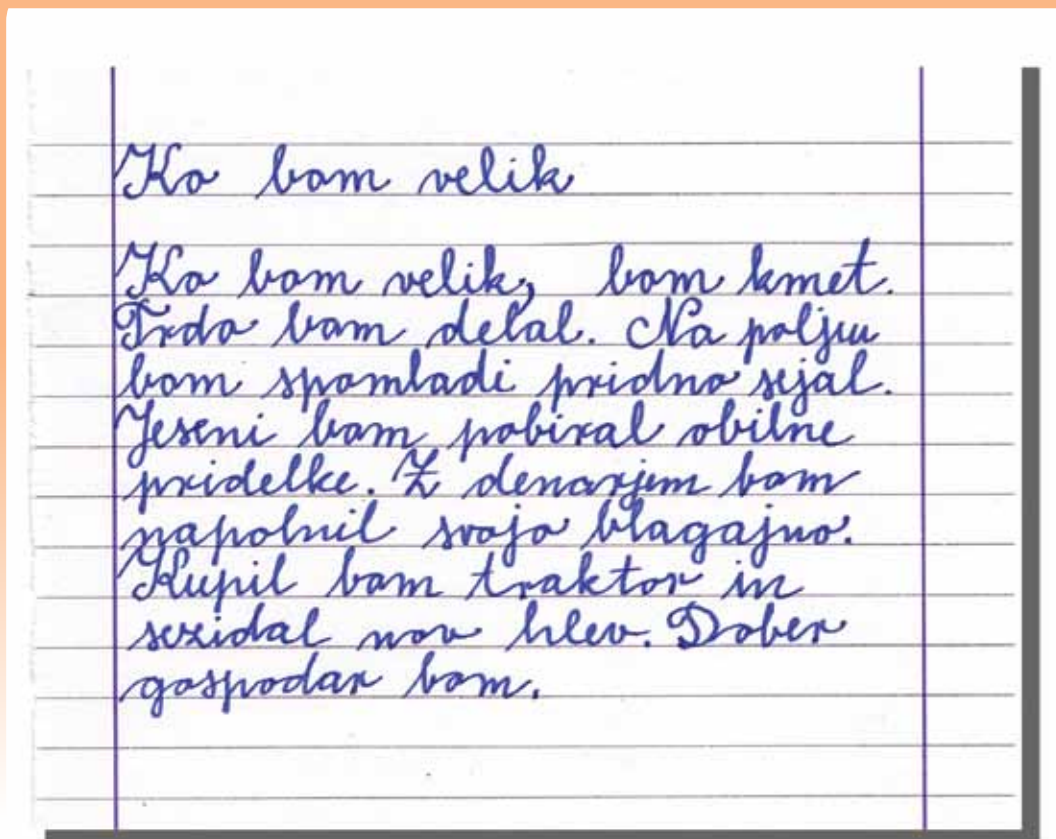 Ko bom velik
Ko bom velik, bom kmet.
Trdo bom delal. Na polju
bom spomladi pridno sejal.
Jeseni bom pobiral obilne
pridelke. Z denarjem bom
napolnil svojo blagajno.
Kupil bom traktor in
sezidal nov hlev. Dober
gospodar bom.